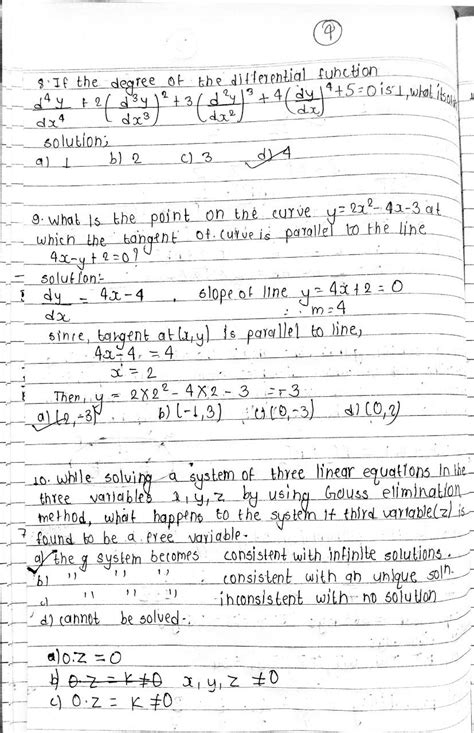 9
8. If the degree of the differential function
d⁴y/dx⁴ + 2(d³y/dx³)² + 3(d²y/dx²)³ + 4(dy/dx)⁴ + 5 = 0 is 1, what its
solution;
a) 1 b) 2 c) 3 d) 4
9. What Is the point on the curve y = 2x² - 4x - 3 at
which the tangent of curve is parallel to the line
4x - y + 2 = 0?
solution:-
dy/dx = 4x - 4 . slope of line y = 4x + 2 = 0
∴ m = 4
since, tangent at (x,y) is parallel to line,
4x - 4 = 4
x = 2
Then, y = 2×2² - 4×2 - 3 = -3
a) (2, -3) b) (-1, 3) c) (0, -3) d) (0, 2)
10. While solving a system of three linear equations In the
three variables x, y, z by using Gauss elimination
method, what happens to the system if third variable (z) is
found to be a free variable.
a) The g system becomes consistent with infinite solutions.
b) " " " consistent with an unique solⁿ.
c) " " " inconsistent with no solution
d) cannot be solved.
a) 0.z = 0
b) 0.z = K ≠ 0 x, y, z ≠ 0
c) 0.z = K ≠ 0